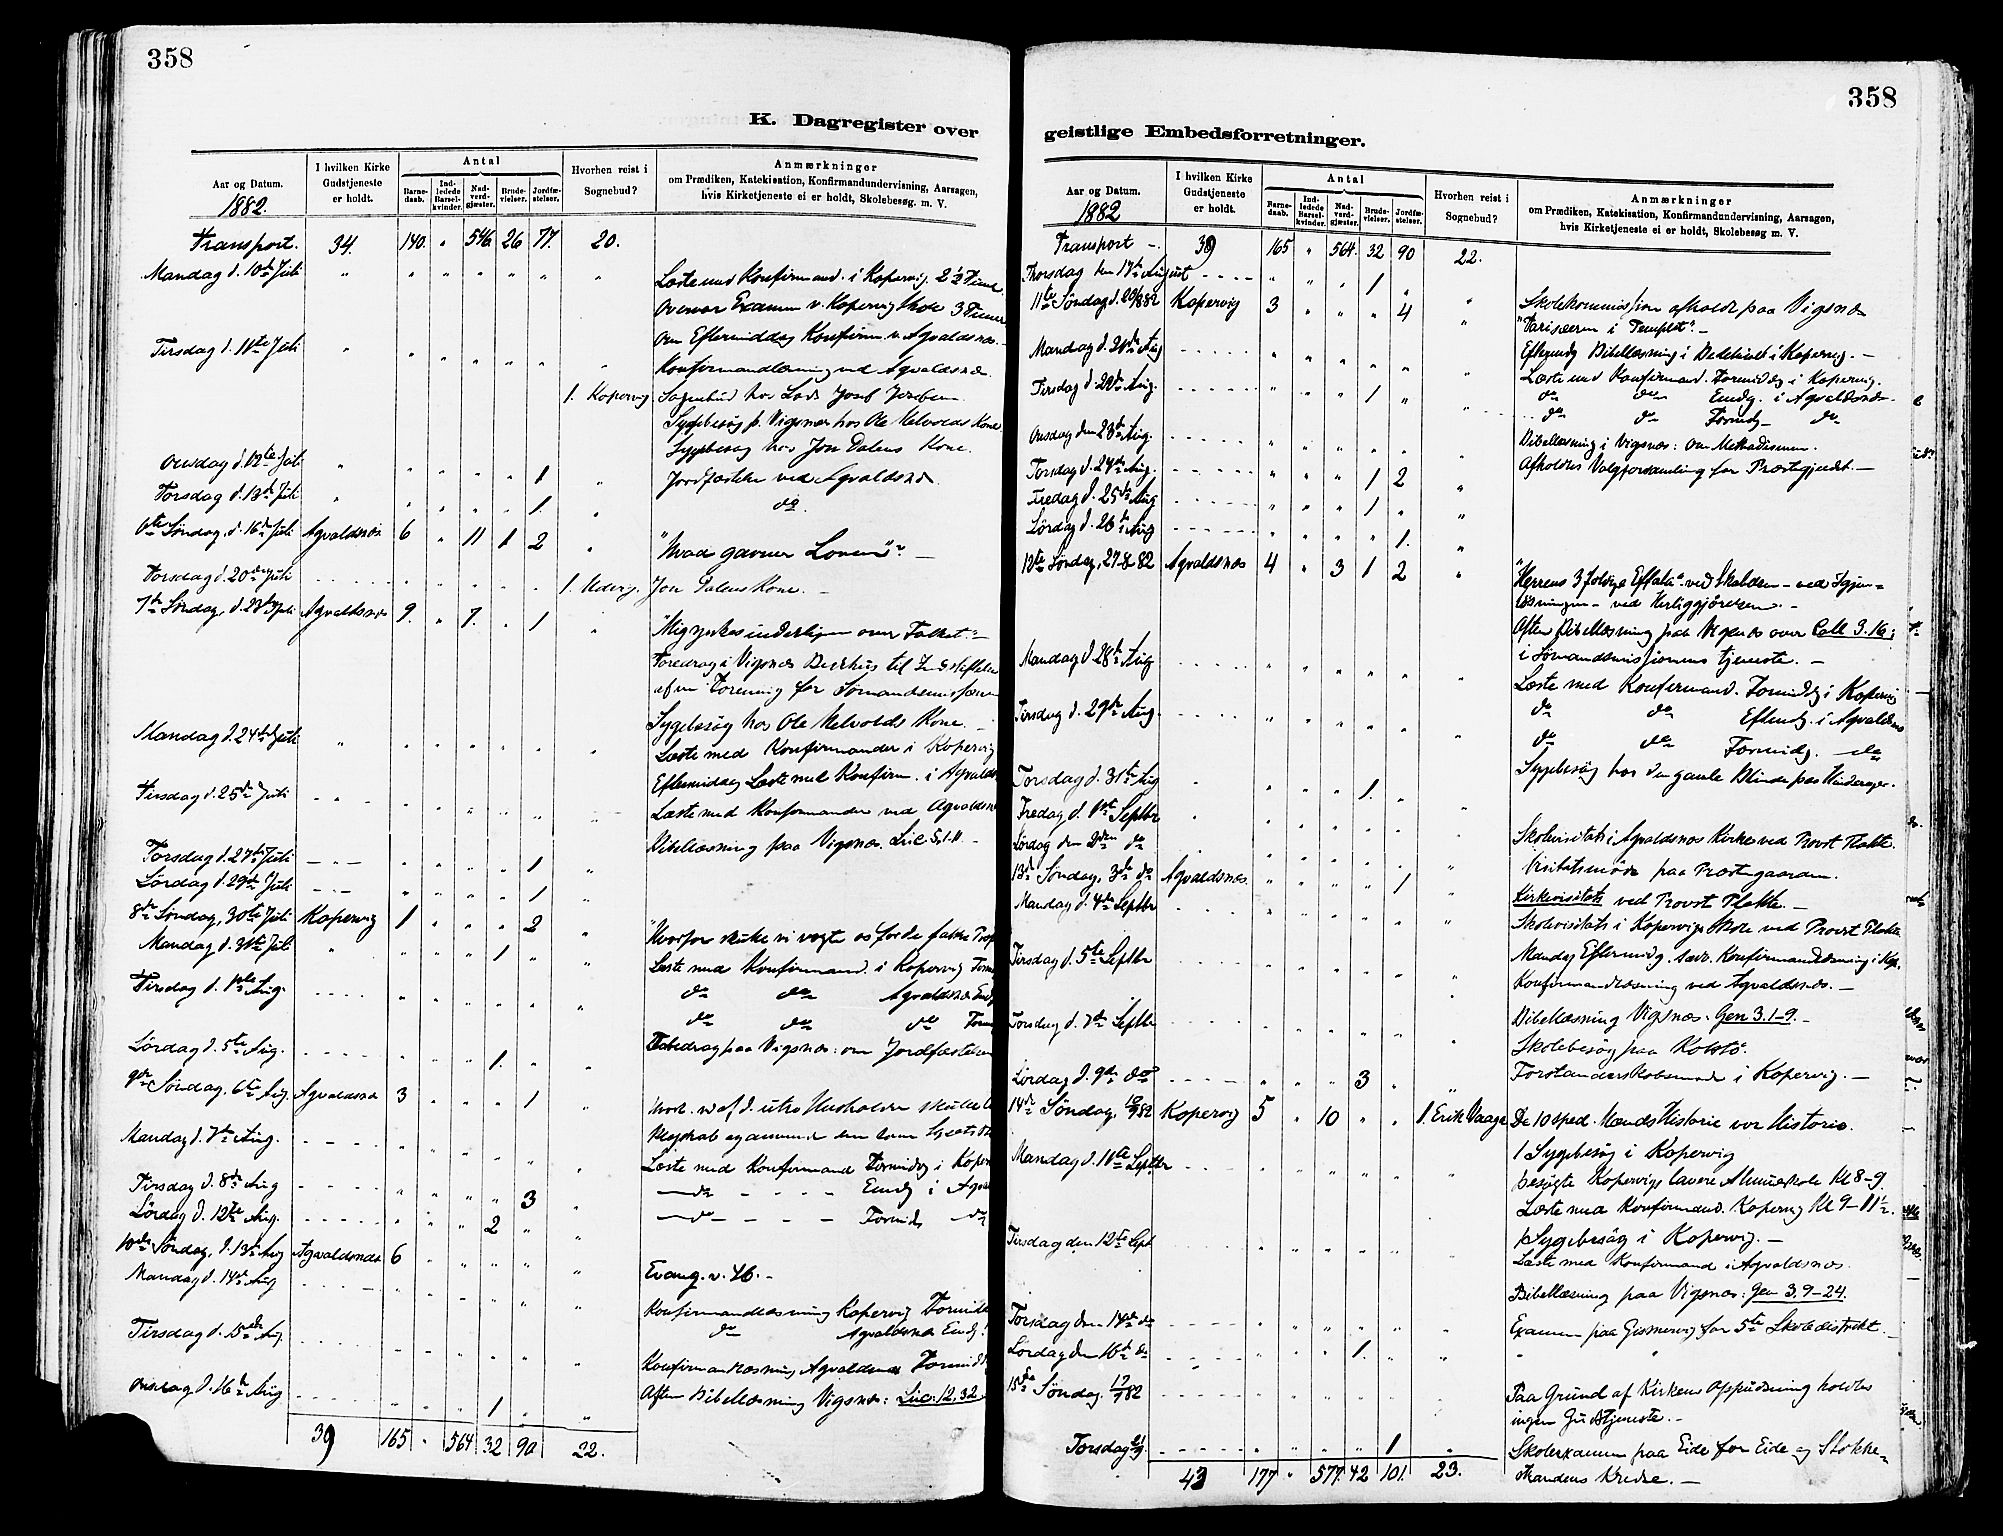 358
K. Dagregister over
Aar og Datum. I hvilken Kirke Gudstjeneste er holdt. Antal Barnedaab. Indledede Barselkvinder. Nadverdgjæster. Brudevielser. Jordfæstelser. Hvorhen reist i Sognebud? Anmærkninger om Prædiken, Katekisation, Konfirmandundervisning, Aarsagen, hvis Kirketjeneste ei er holdt, Skolebesøg. m. V.
1882.
Transport. 34. 140. " 546 26 77. 20.
Mandag d. 10de Juli " " " " " " " Læste med Konfirmand. i Kopervig 2 1/2 Time
Overvar Examen v. Kopervig Skole 3 Timer
Om Eftermiddag Konfirm. v. Agvaldsnæs.
Tirsdag d. 11te Juli " " " " " " " Konfirmandlæsning ved Agvaldsnæs.
1. Kopervig. Sognebud hos Lods Josef
Sygebesøg p. Vigsnæs hos Ole Melvolds Kone
Sygebesøg hos Jon Dalens Kone.
Onsdag d. 12te Juli " " " " " 1 " Jordfæstelse ved Agvaldsnæs
Torsdag d. 13de Juli " " " " " 1. " do.
6te Søndag, d. 16de Juli Agvaldsnæs 6 " 11 1 2 " "Hvad gavner Loven"? —
Torsdag d. 20de Juli 1. Jon Dalens Kone. —
7de Søndag, d. 23de Juli Agvaldsnæs 9. " 7. " 1 " "Mig ynkes inderligen over Folket." —
Foredrag i Vigsnæs Bedehus til
af en Forening for Sømandsmissionen
Sygebesøg hos Ole Melvolds Kone. —
Mandag d. 24de Juli " " " " " " " Læste med Konfirmander i Kopervig
Eftermiddag Læste med Konfirm. i Agvalds
Tirsdag d. 25de Juli " " " " " " Læste med Konfirmander ved Agvaldsnæs
Bibellæsning paa Vigsnæs. Luc 5, 1-11 —
Torsdag d. 27de Juli " " " " 1 "
Lørdag d. 29de Juli " " " " 1 "
8de Søndag, 30te Juli Kopervig 1 " " " 2 " "Hvorfor skulle vi vogte os for de falske Prof
Mandag d. 31te Juli " " " " 1 " " Læste med Konfirmand. i Kopervig Form
Tirsdag d. 1ste Aug. " " " " " " do do Agvaldsnæs Emdg
do do do Form
Foredrag paa Vigsnæs: om Jordfæstelsen
Lørdag d. 5te Aug. " " " 1. " "
9de Søndag, 6te Aug. Agvaldsnæs 3 " " " 1 "
Mandag d. 7de Aug. " " " " " " Læste med Konfirmand Formidg i Koper
Tirsdag d. 8de Aug " " " " 3 " — do — Emdg i Agva
Lørdag d. 12te Aug. " " " 2 " " — do — Formidg do
10de Søndag, d. 13de Aug Agvaldsnæs 6 " " " " " Evang. v. 46. —
Mandag d. 14de Aug " " " " " " Konfirmandlæsning Kopervig Formidd
do Agvaldsnæs Emdg
Tirsdag d. 15de Aug. " " " " " " Konfirmandlæsning Agvaldsnæs Formidd
Onsdag d. 16de Aug " " " 1 " " Aften Bibellæsning Vigsnæs: Luc: 12, 32
39 165 " 564 32 90 22.
358
geistlige Embedsforretninger.
Aar og Datum. I hvilken Kirke Gudstjeneste er holdt. Antal Barnedaab. Indledede Barselkvinder. Nadverdgjæster. Brudevielser. Jordfæstelser. Hvorhen reist i Sognebud? Anmærkninger om Prædiken, Katekisation, Konfirmandundervisning, Aarsagen, hvis Kirketjeneste ei er holdt, Skolebesøg m. V.
1882
Transport — 39 165 " 564. 32 90 22.
Thorsdag den 17de August " " " 1 " " Skolekommission afholdt paa Vigsnæs
11te Søndag d. 20/8 82 Kopervig 3 " " " 4 " "Farisæeren i Templet". —
Eftermdg Bibellæsning i Bedehuset i Kopervig. —
Mandag d. 21de Aug " " " " " " Læste med Konfirmand. Formiddg i Kopervig.
do do Emdg. i Agvaldsnæs.
Tirsdag d. 22de Aug. " " " 1 " " do do Formdg — do
Bibellæsning i Vigsnæs: om Methodismen.
Onsdag den 23de Aug. " " " " " " Afholdtes Valgforsamling for Præstegjeldet. —
Torsdag d. 24de Aug. " " " 1 2 "
Fredag d. 25de Aug " " " 1 " "
Lørdag d. 26de Aug " " " " 1. "
12te Søndag, 27-8-82 Agvaldsnæs 4 " 3 1 2 " "Herrens 3foldige Effata" ved Skabelsen — ved Igjen-
løsningen — ved Herliggjørelsen. —
Aften Bibellæsning paa Vigsnæs over Coll 3.16;
i Sømandsmissionens tjeneste. —
Mandag d 28de Aug " " " " " " Læste med Konfirmand. Formidg i Kopervig
do do Eftmdg. i Agvaldsnæs
Tirsdag d. 29de Aug. " " " " " " do do Formidg. do
Sygebesøg hos den gamle Blinde paa Hinderager.
Torsdag d. 31te Aug " " " " 1. " "
Fredag d. 1ste Septbr " " " " " " "
Lørdag den 2den do " " " " " " Skolevisitats i Agvaldsnæs Kirke ved Provst Flakke.
Visitatsmøde paa Præstegaarden.
13de Søndag, 3de do Agvaldsnæs. " " " " 1 " Kirkevisitats ved Provst Flakke. —
Mandag d. 4de Septbr " " " " " " Skolevisitats i Kopervigs Skole ved Provst Flakke
Mandag Eftermidg. Konfirmandlæsning i Kop.
Tirsdag d. 5te Septbr " " " " " " Konfirmandlæsning ved Agvaldsnæs. —
Bibellæsning Vigsnæs. Gen 3.1-9. —
Torsdag d. 7de Septbr " " " " " " Skolebesøg paa Kolstø.
Forstanderskabsmøde i Kopervig. —
Lørdag d. 9de do " " " 3 " "
14de Søndag, 10/9 82 Kopervig 5 " 10 " " 1. Erik Vaage De 10 sped. Mænds Historie vor Historie.
1 Sygebesøg i Kopervig
Mandag d. 11te Septbr " " " " " " besøgte Kopervigs lavere Almueskole Kl 8-9.
Læste med Konfirmand. Kopervig Kl 9-11 1/2.
1 Sygebesøg i Kopervig. —
Tirsdag den 12te Sept " " " " " " Læste med Konfirmand i Agvaldsnæs.
Bibellæsning paa Vigsnæs: Gen 3.9-24.
Torsdag den 14de do " " " " " " Examen paa Gismervig for 5te Skoledistrikt.
Lørdag den 16de do " " " 1. " " "
15de Søndag 17/9 82 " " " " " " Paa Grund af Kirkens Oppudsning holdtes
ingen Gudstjeneste. —
Torsdag 21/9 " " " " 1 " Skoleexamen paa Eide for Eide og Stokke-
strandens Kredse. —
43 177 " 577. 42 101. 23.